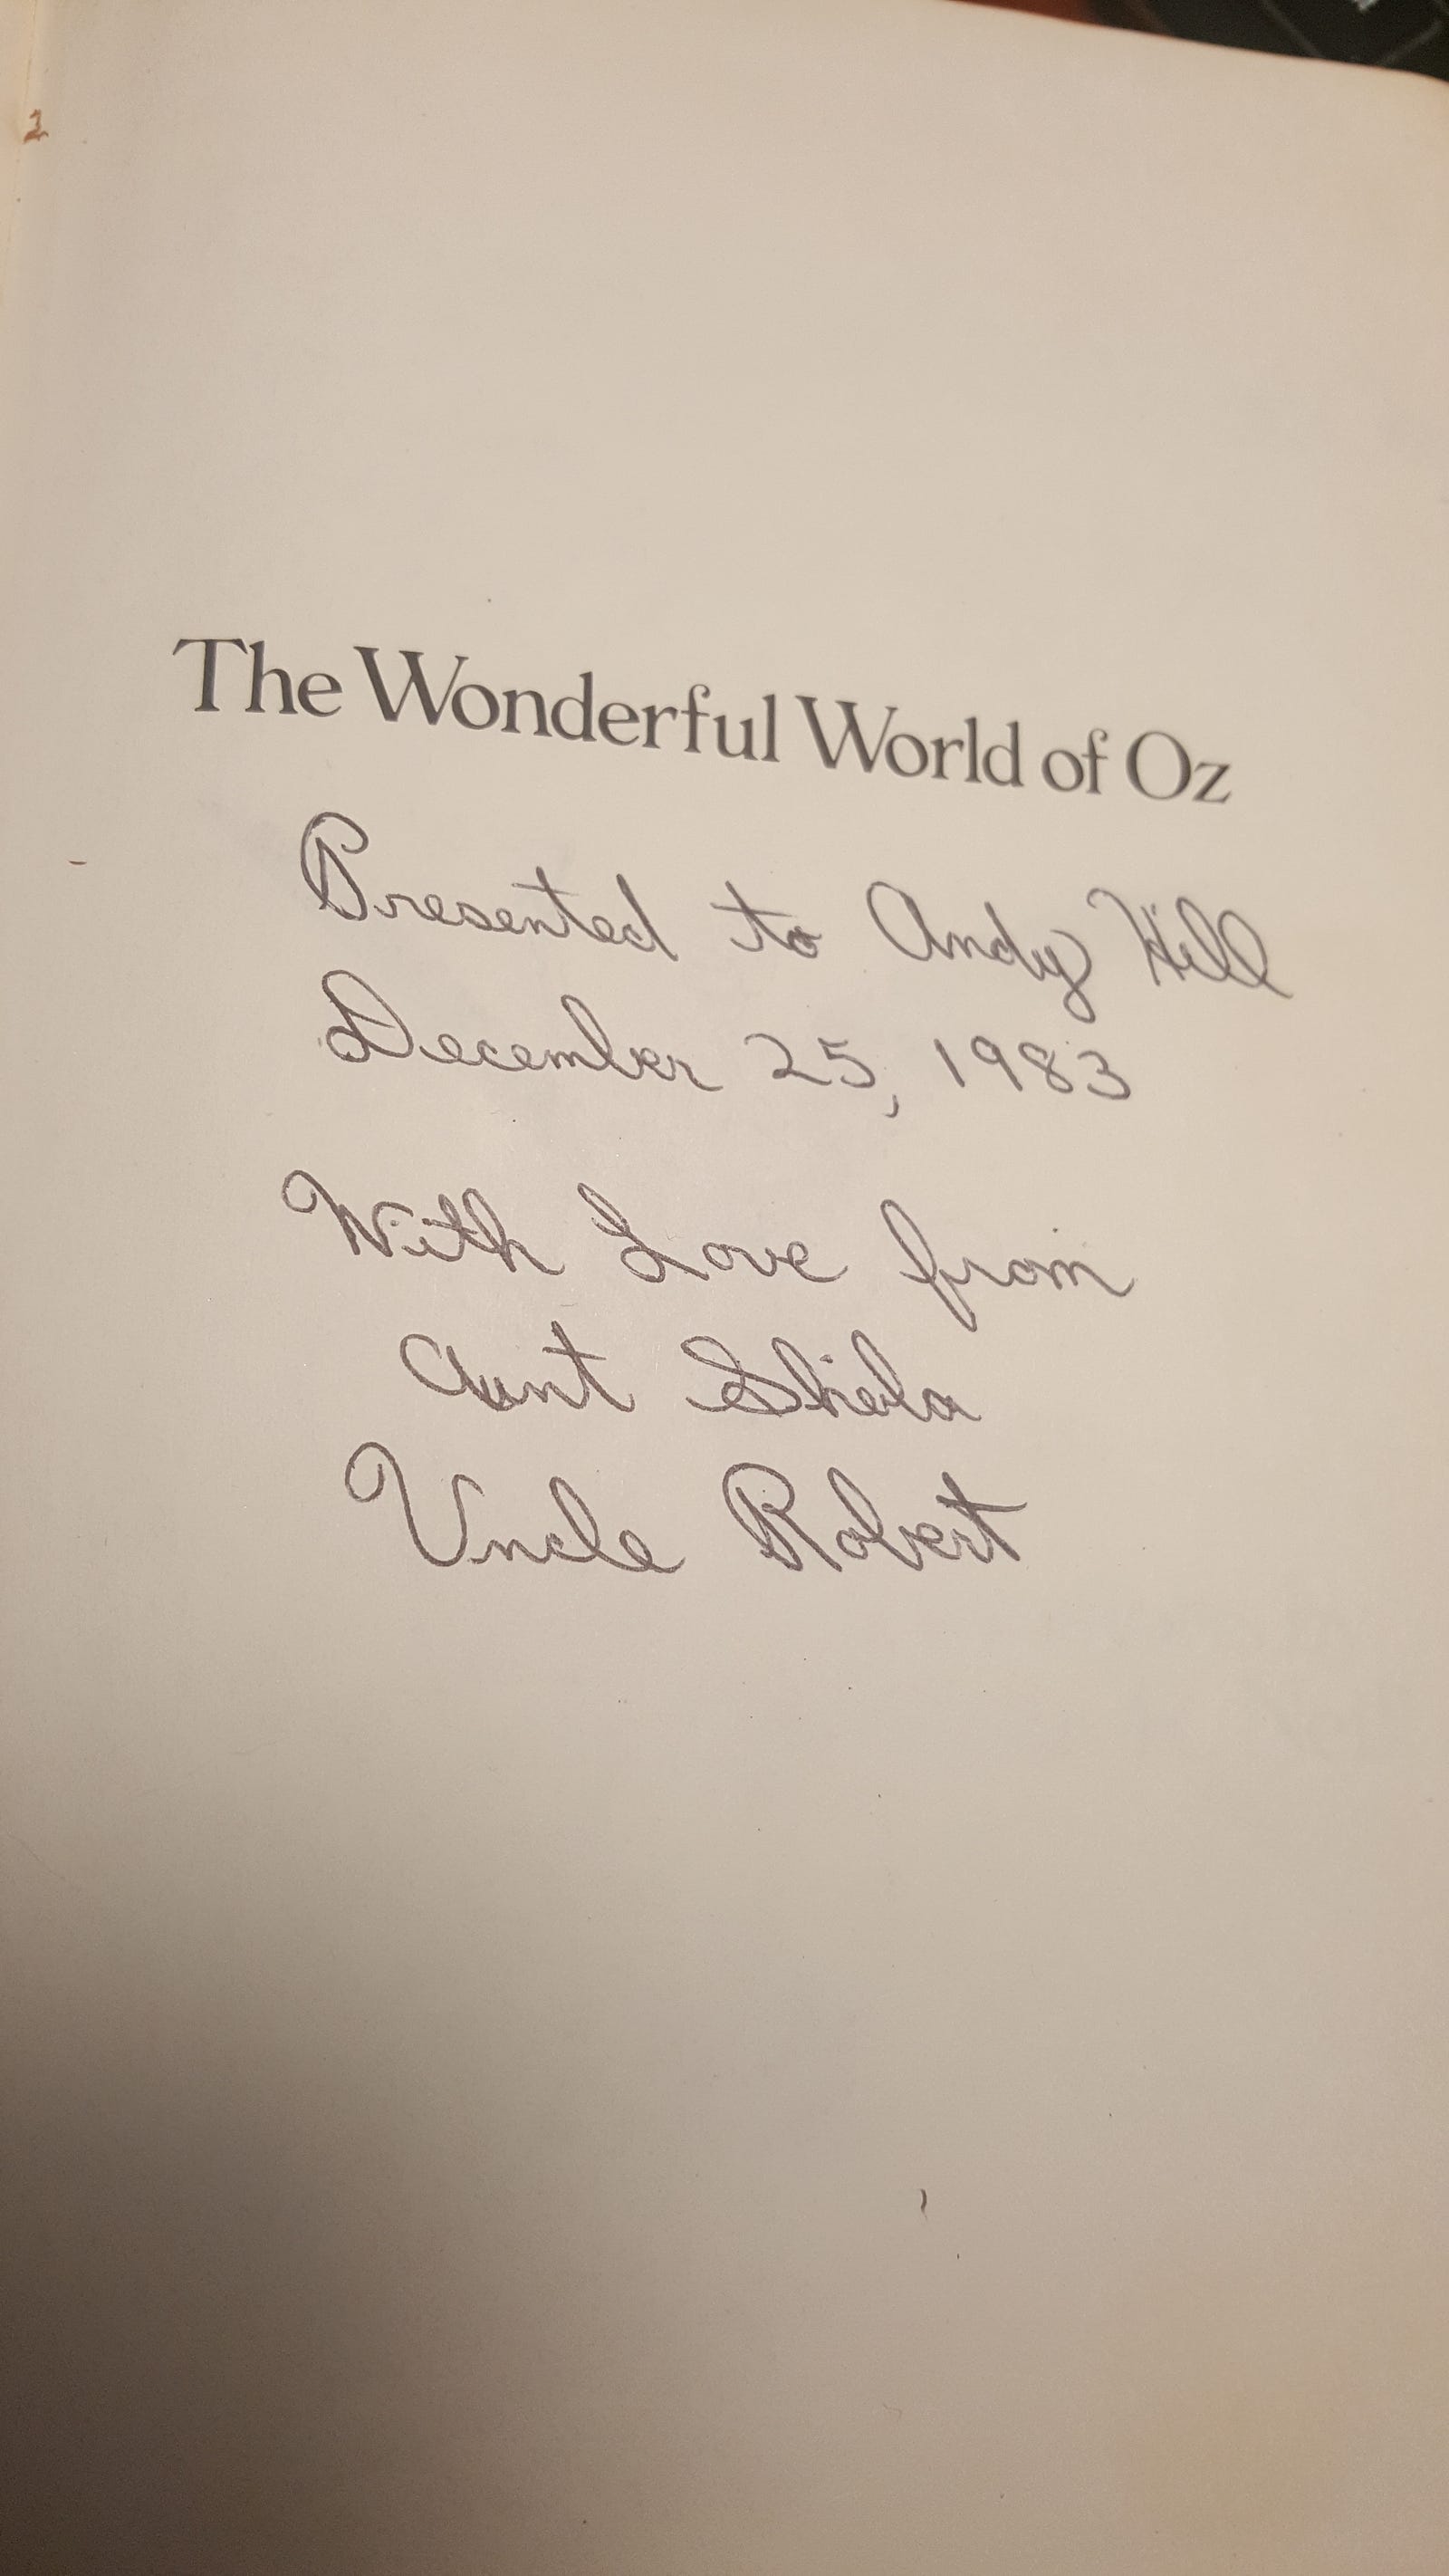 The Wonderful World of Oz
Presented to Andy Hill
December 25, 1983
With Love from
Aunt Shiela
Uncle Robert